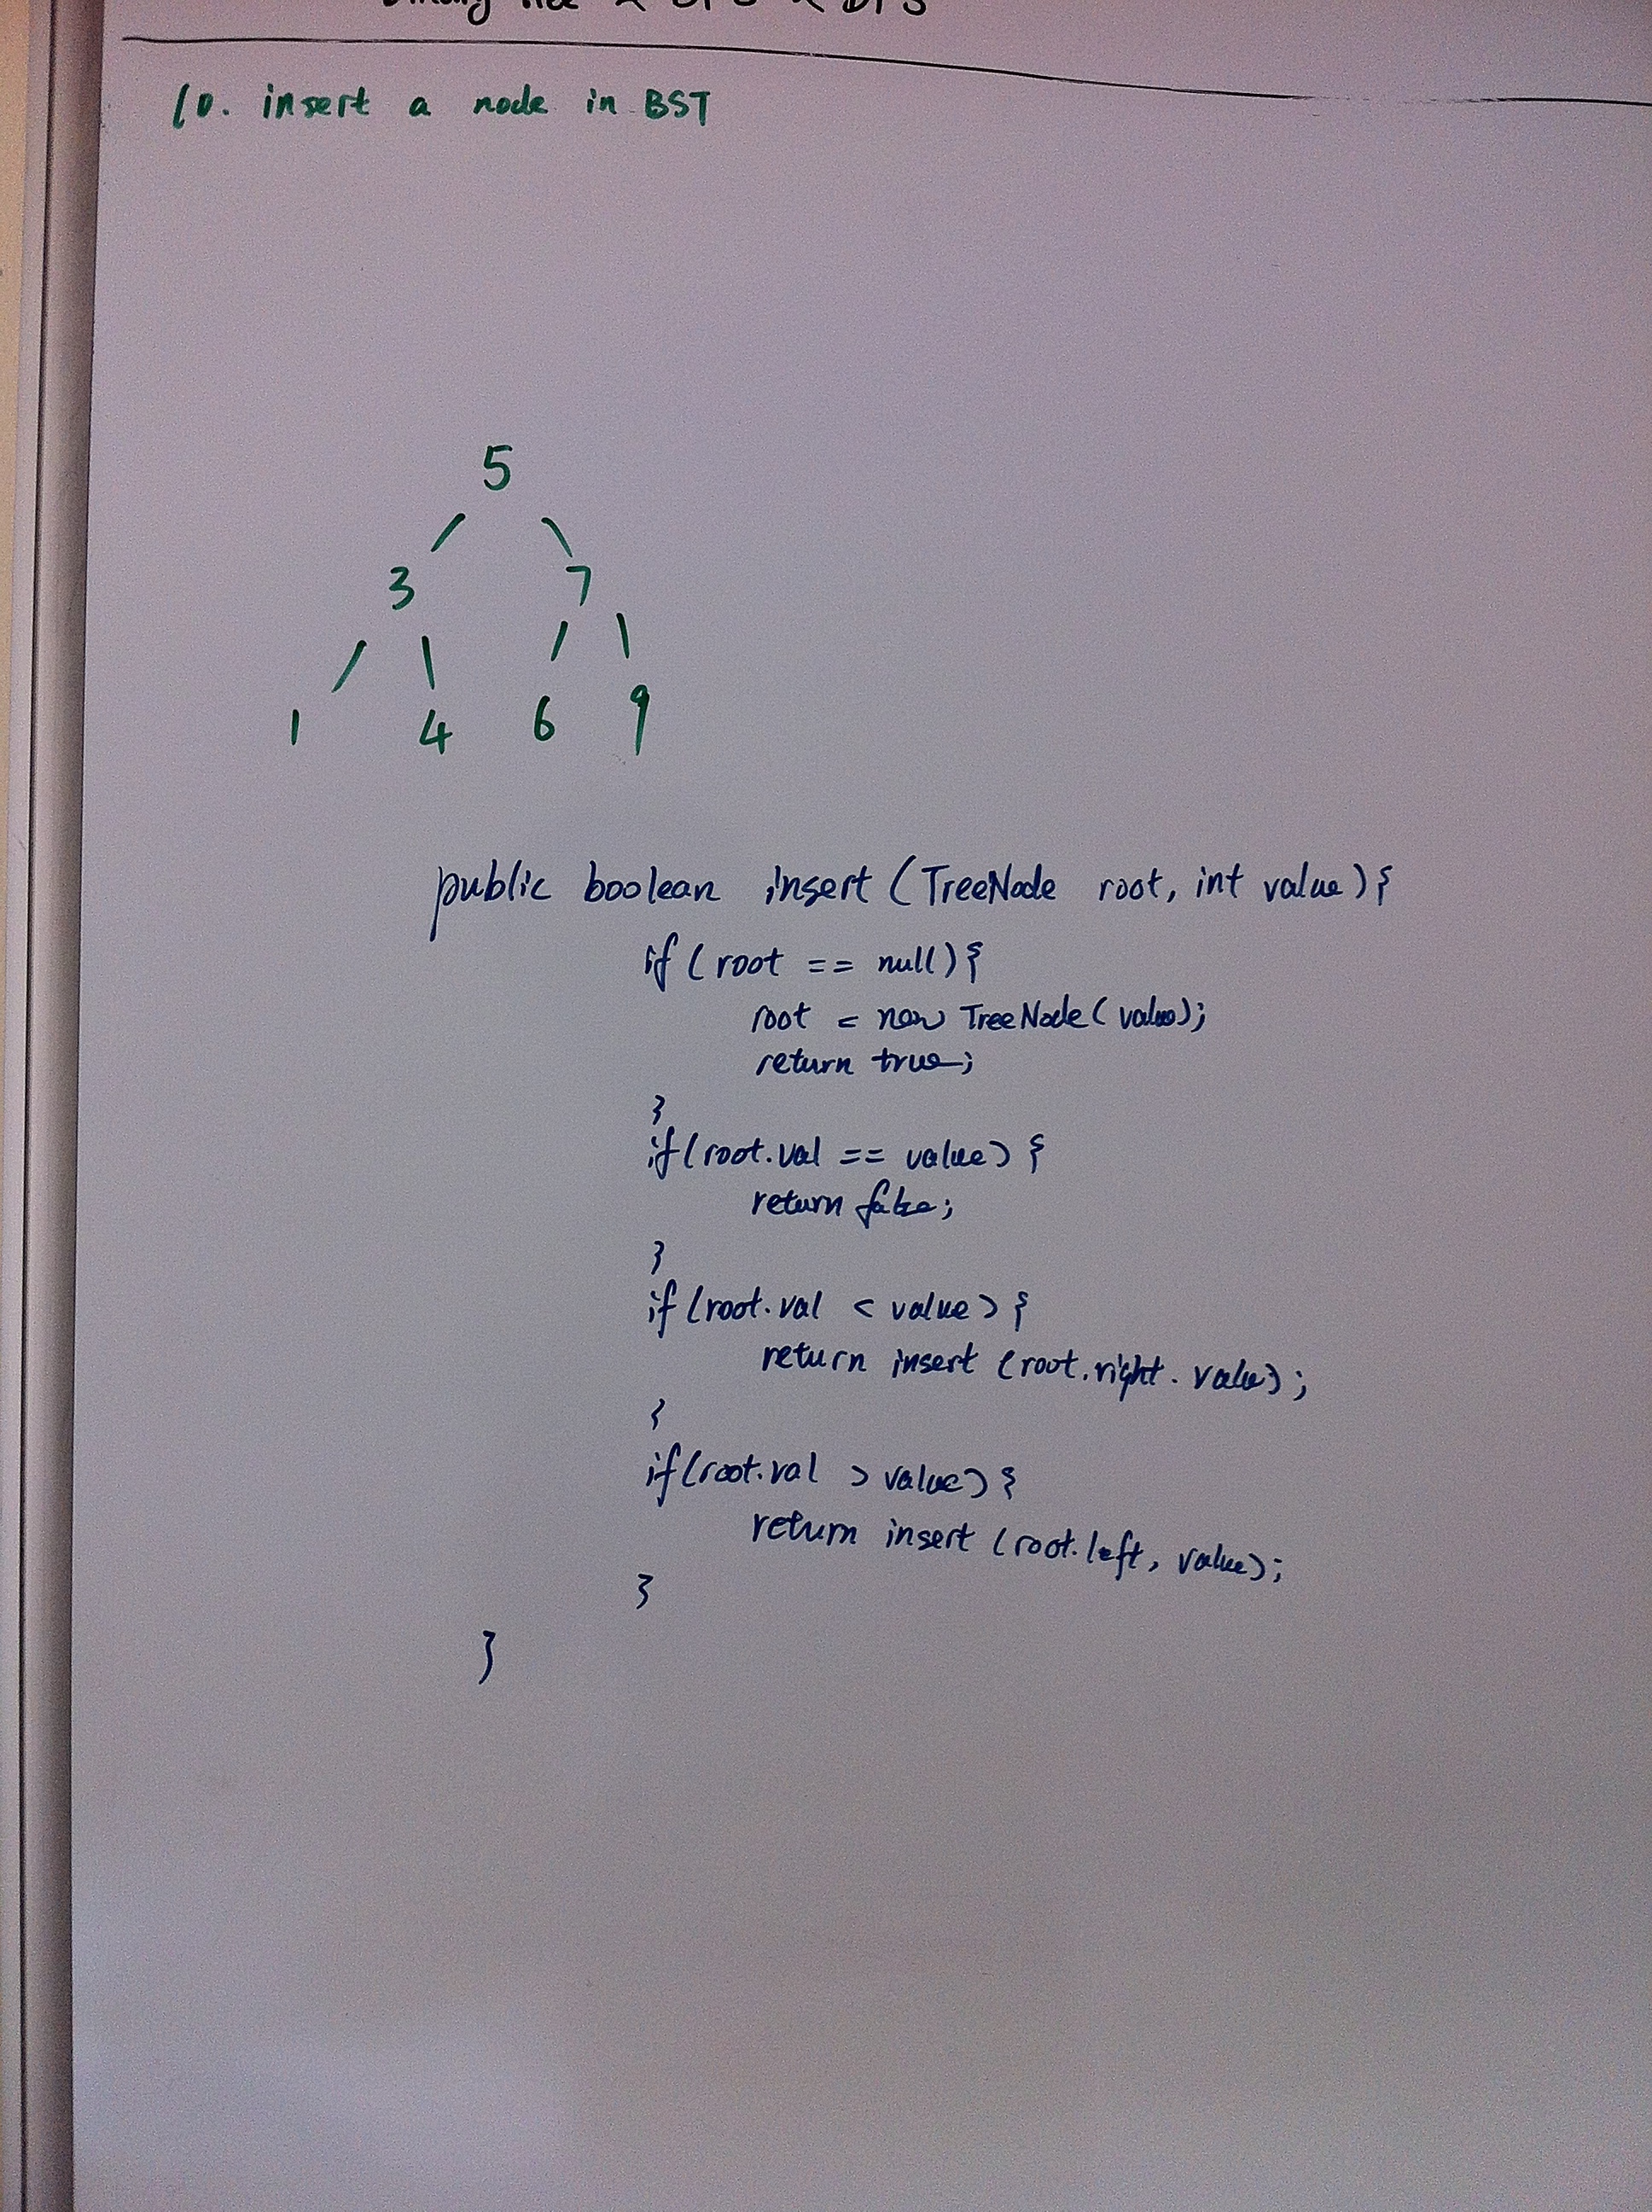 10. insert a node in BST
5
3 7
1 4 6 9
public boolean insert (TreeNode root, int value) {
if (root == null) {
root = new TreeNode (value);
return true;
}
if (root.val == value) {
return false;
}
if (root.val < value) {
return insert (root.right. value);
}
if (root.val > value) {
return insert (root.left, value);
}
}